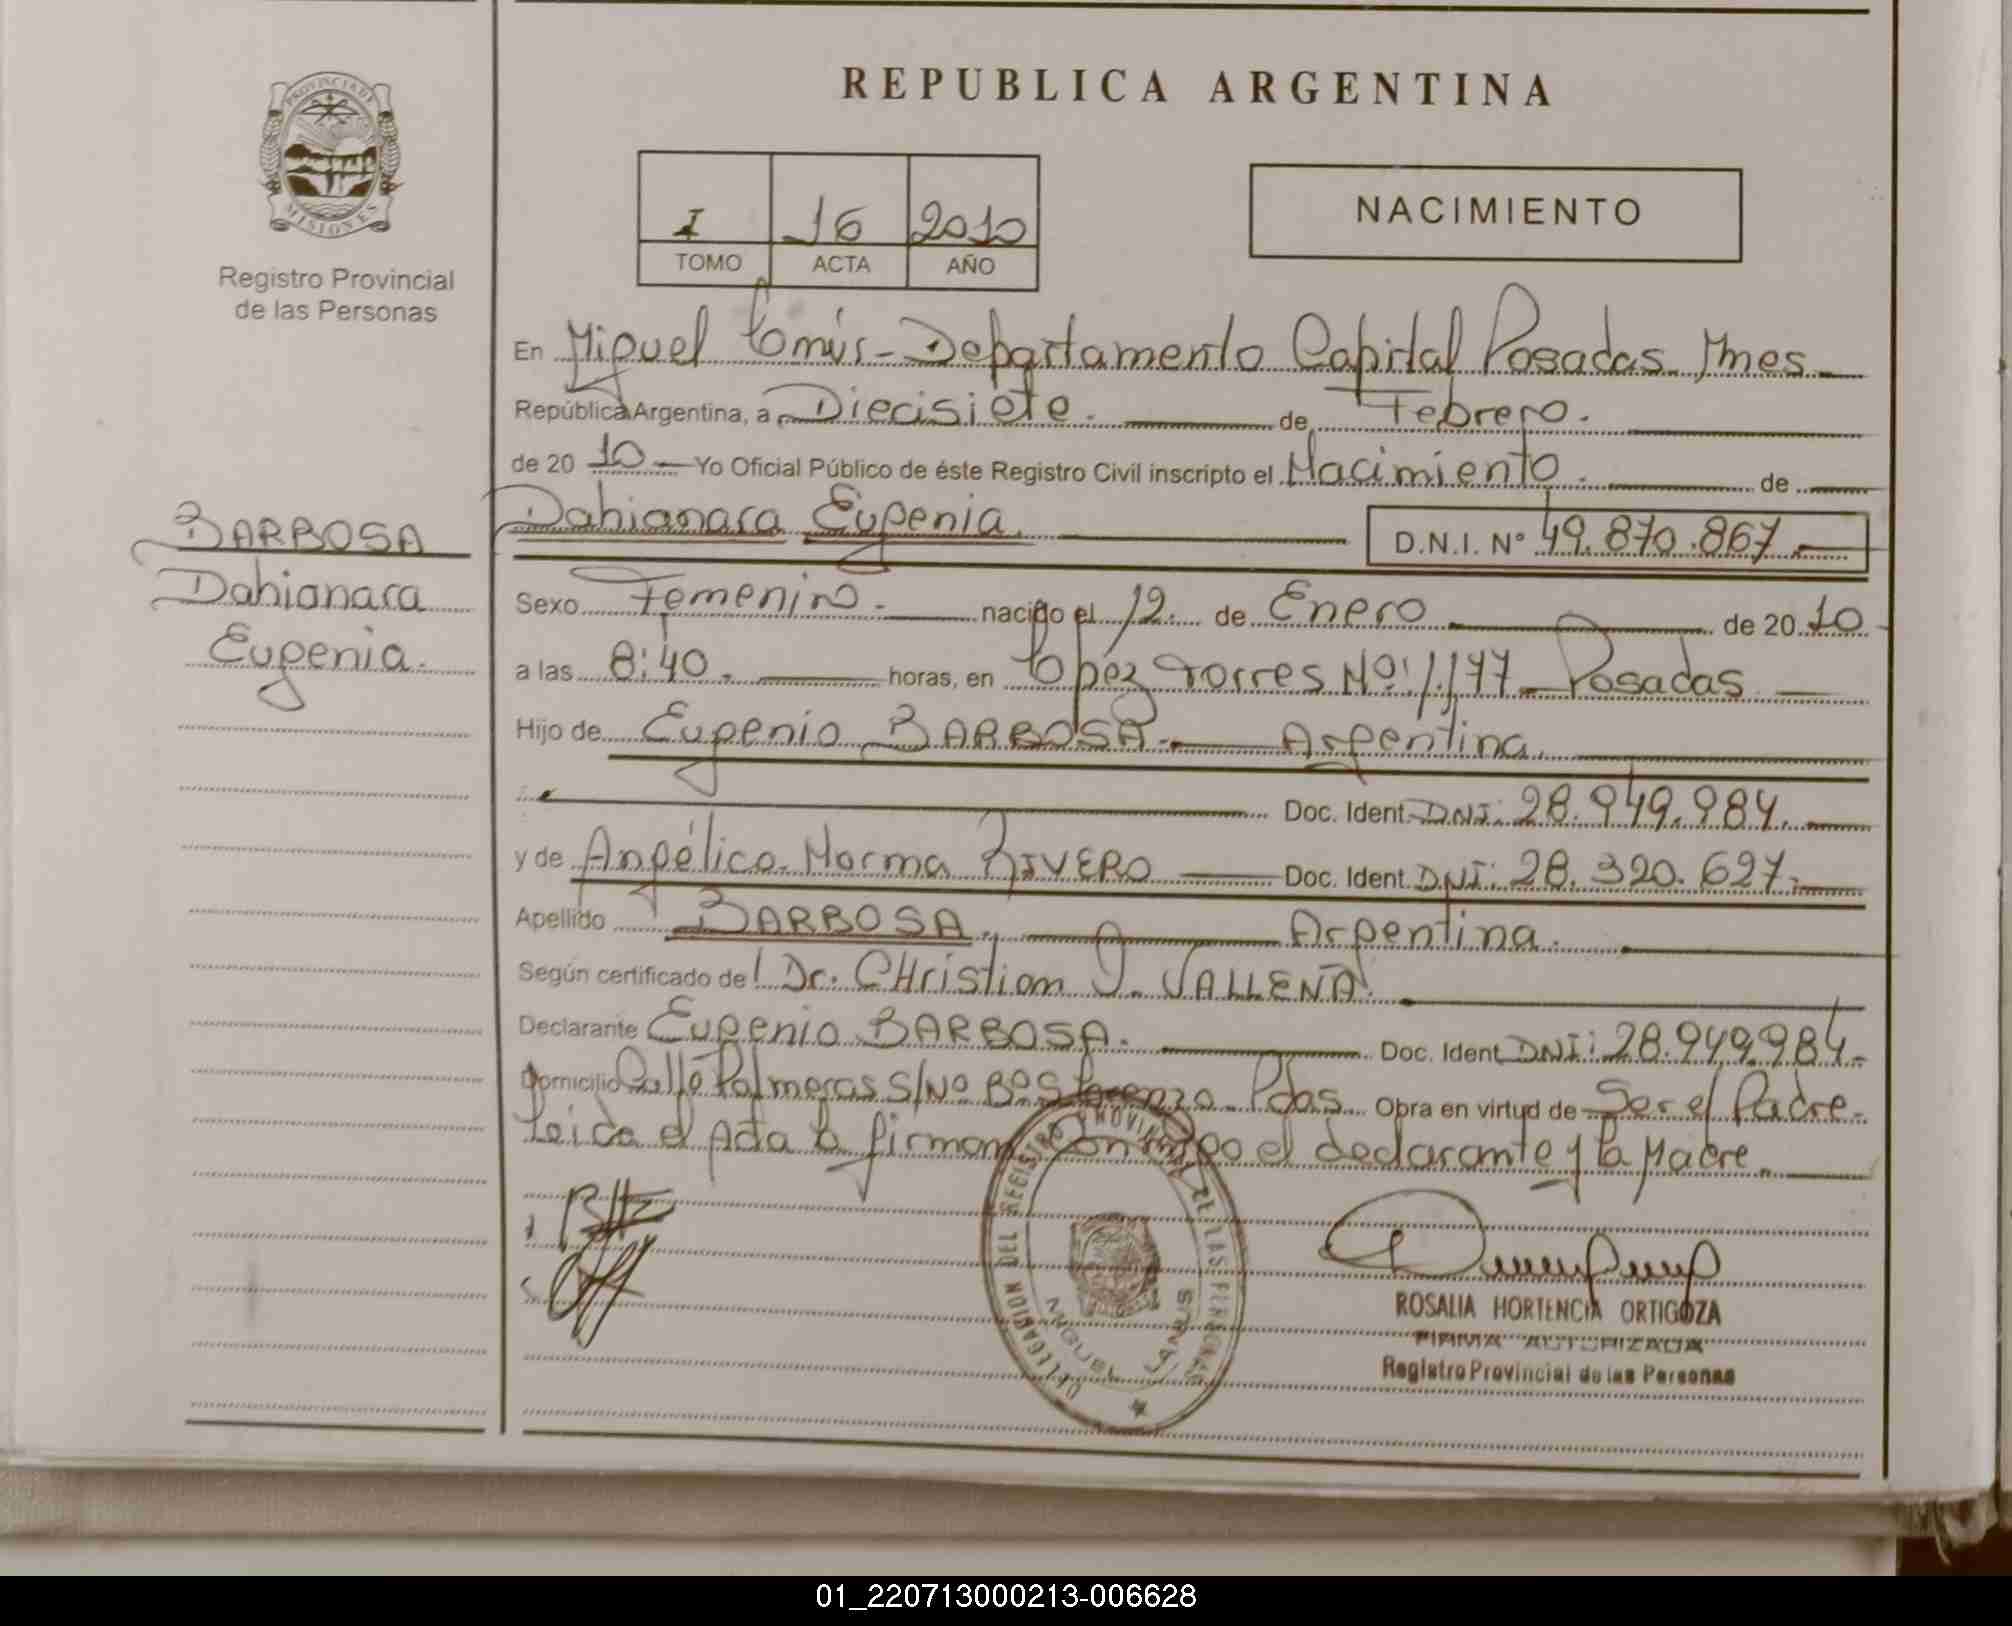 PROVINCIA DE
MISIONES
Registro Provincial
de las Personas
BARBOSA
Dahianara
Eugenia.
REPUBLICA ARGENTINA
I 16 2010
TOMO ACTA AÑO
NACIMIENTO
En Miguel Lanús - Departamento Capital Posadas Mnes
República Argentina, a Diecisiete. de Febrero.
de 20 10 Yo Oficial Público de éste Registro Civil inscripto el Nacimiento. de
Dahianara Eugenia. D.N.I. Nº 49.870.867.
Sexo Femenino. nacido el 12. de Enero de 20 10
a las 8:40. horas, en López Torres Nº: 1.177 Posadas
Hijo de Eugenio BARBOSA. Argentina.
Doc. Ident. DNI: 28.949.984.
y de Angélica Norma RIVERO Doc. Ident. DNI: 28.320.627.
Apellido BARBOSA. Argentina.
Según certificado de: Dr. CHristian J. VALLEÑA.
Declarante Eugenio BARBOSA. Doc. Ident. DNI: 28.949.984.
Domicilio Calle Palmeras S/Nº Bº S. Lorenzo. Pdas. Obra en virtud de Ser el Padre.
Leida el Acta la firman conmigo el declarante y la Madre.
DELEGACION DEL REGISTRO PROVINCIAL DE LAS PERSONAS
MIGUEL LANUS
ROSALIA HORTENCIA ORTIGOZA
FIRMA AUTORIZADA
Registro Provincial de las Personas
01_220713000213-006628